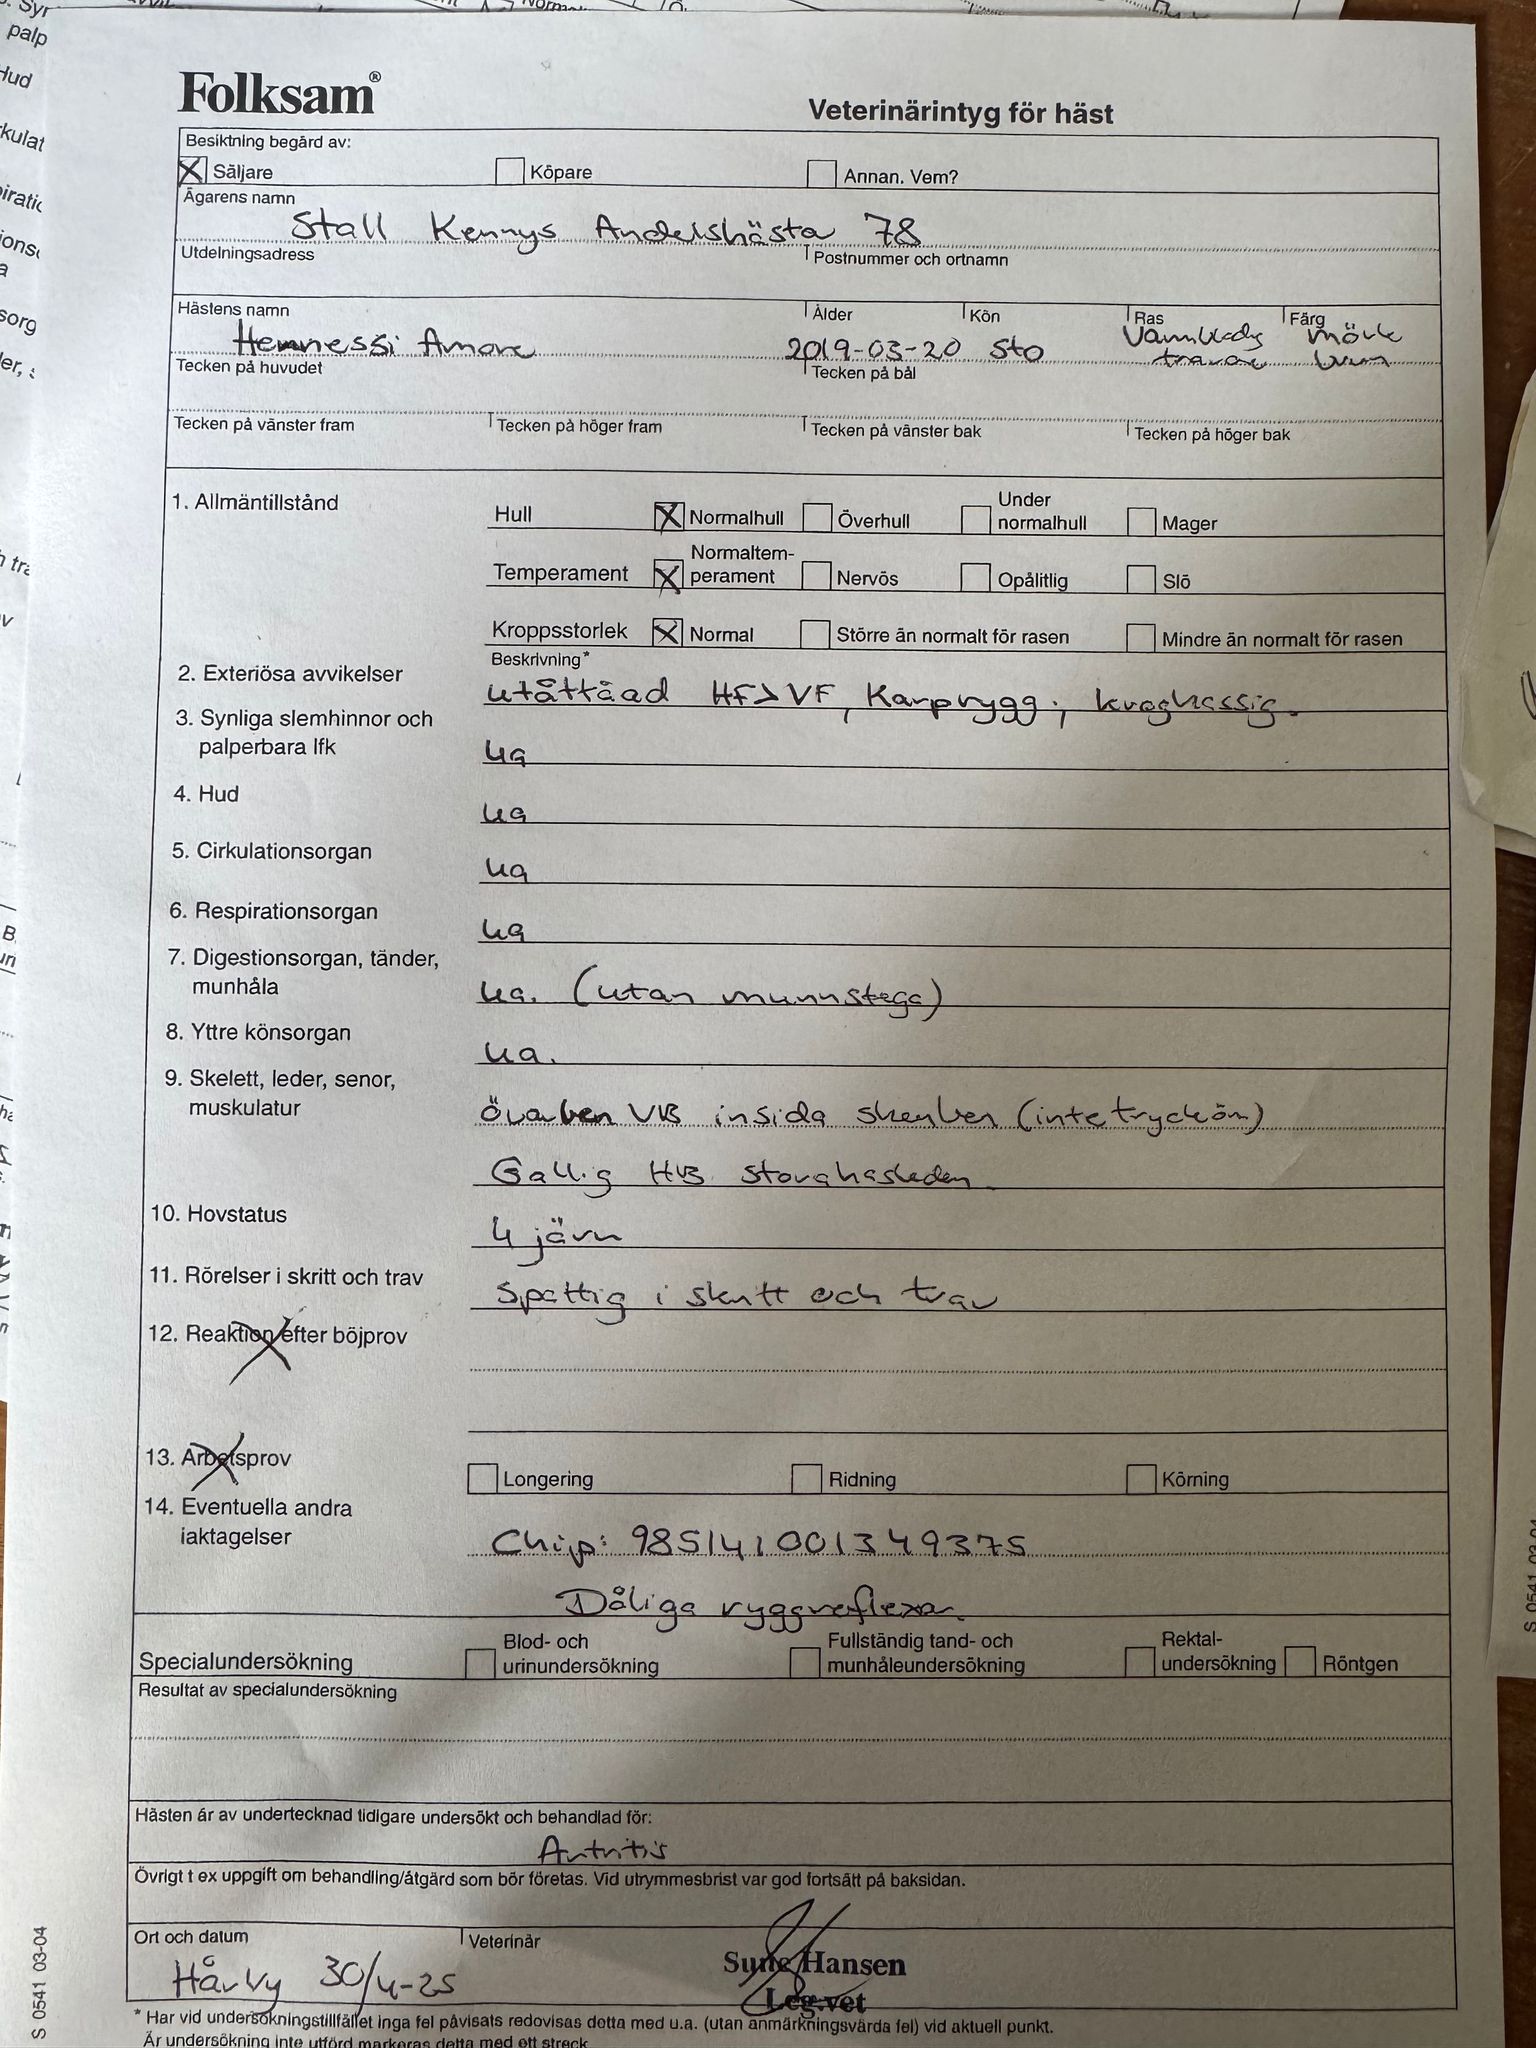 Folksam®
Veterinärintyg för häst
Besiktning begärd av:
Säljare Köpare Annan. Vem?
Ägarens namn
Stall Kennys Andelshästar 78
Utdelningsadress Postnummer och ortnamn
Hästens namn Ålder Kön Ras Färg
Hennessi Amore 2019-03-20 Sto Varmblodig travare mörk brun
Tecken på huvudet Tecken på bål
Tecken på vänster fram Tecken på höger fram Tecken på vänster bak Tecken på höger bak
1. Allmäntillstånd
Hull Normalhull Överhull Under normalhull Mager
Temperament Normaltem-perament Nervös Opålitlig Slö
Kroppsstorlek Normal Större än normalt för rasen Mindre än normalt för rasen
Beskrivning*
2. Exteriösa avvikelser utåttåad HF>VF, Karprygg, kroghassig.
3. Synliga slemhinnor och
palperbara lfk ua
4. Hud ua
5. Cirkulationsorgan ua
6. Respirationsorgan ua
7. Digestionsorgan, tänder,
munhåla ua. (utan munnstega)
8. Yttre könsorgan ua.
9. Skelett, leder, senor,
muskulatur överben VB insida skenben (inte trycköm)
Gallig HB storahasleden
10. Hovstatus 4 järn
11. Rörelser i skritt och trav Spattig i skritt och trav
12. Reaktion efter böjprov
13. Arbetsprov Longering Ridning Körning
14. Eventuella andra
iaktagelser Chip: 985141001349375
Dåliga ryggreflexer.
Specialundersökning Blod- och urinundersökning Fullständig tand- och munhåleundersökning Rektal-undersökning Röntgen
Resultat av specialundersökning
Hästen är av undertecknad tidigare undersökt och behandlad för:
Artritis
Övrigt t ex uppgift om behandling/åtgärd som bör företas. Vid utrymmesbrist var god fortsätt på baksidan.
Ort och datum Veterinär
Hårby 30/4-25 Sune Hansen
Leg.vet
* Har vid undersökningstillfället inga fel påvisats redovisas detta med u.a. (utan anmärkningsvärda fel) vid aktuell punkt.
Är undersökning inte utförd markeras detta med ett streck
S 0541 03-04